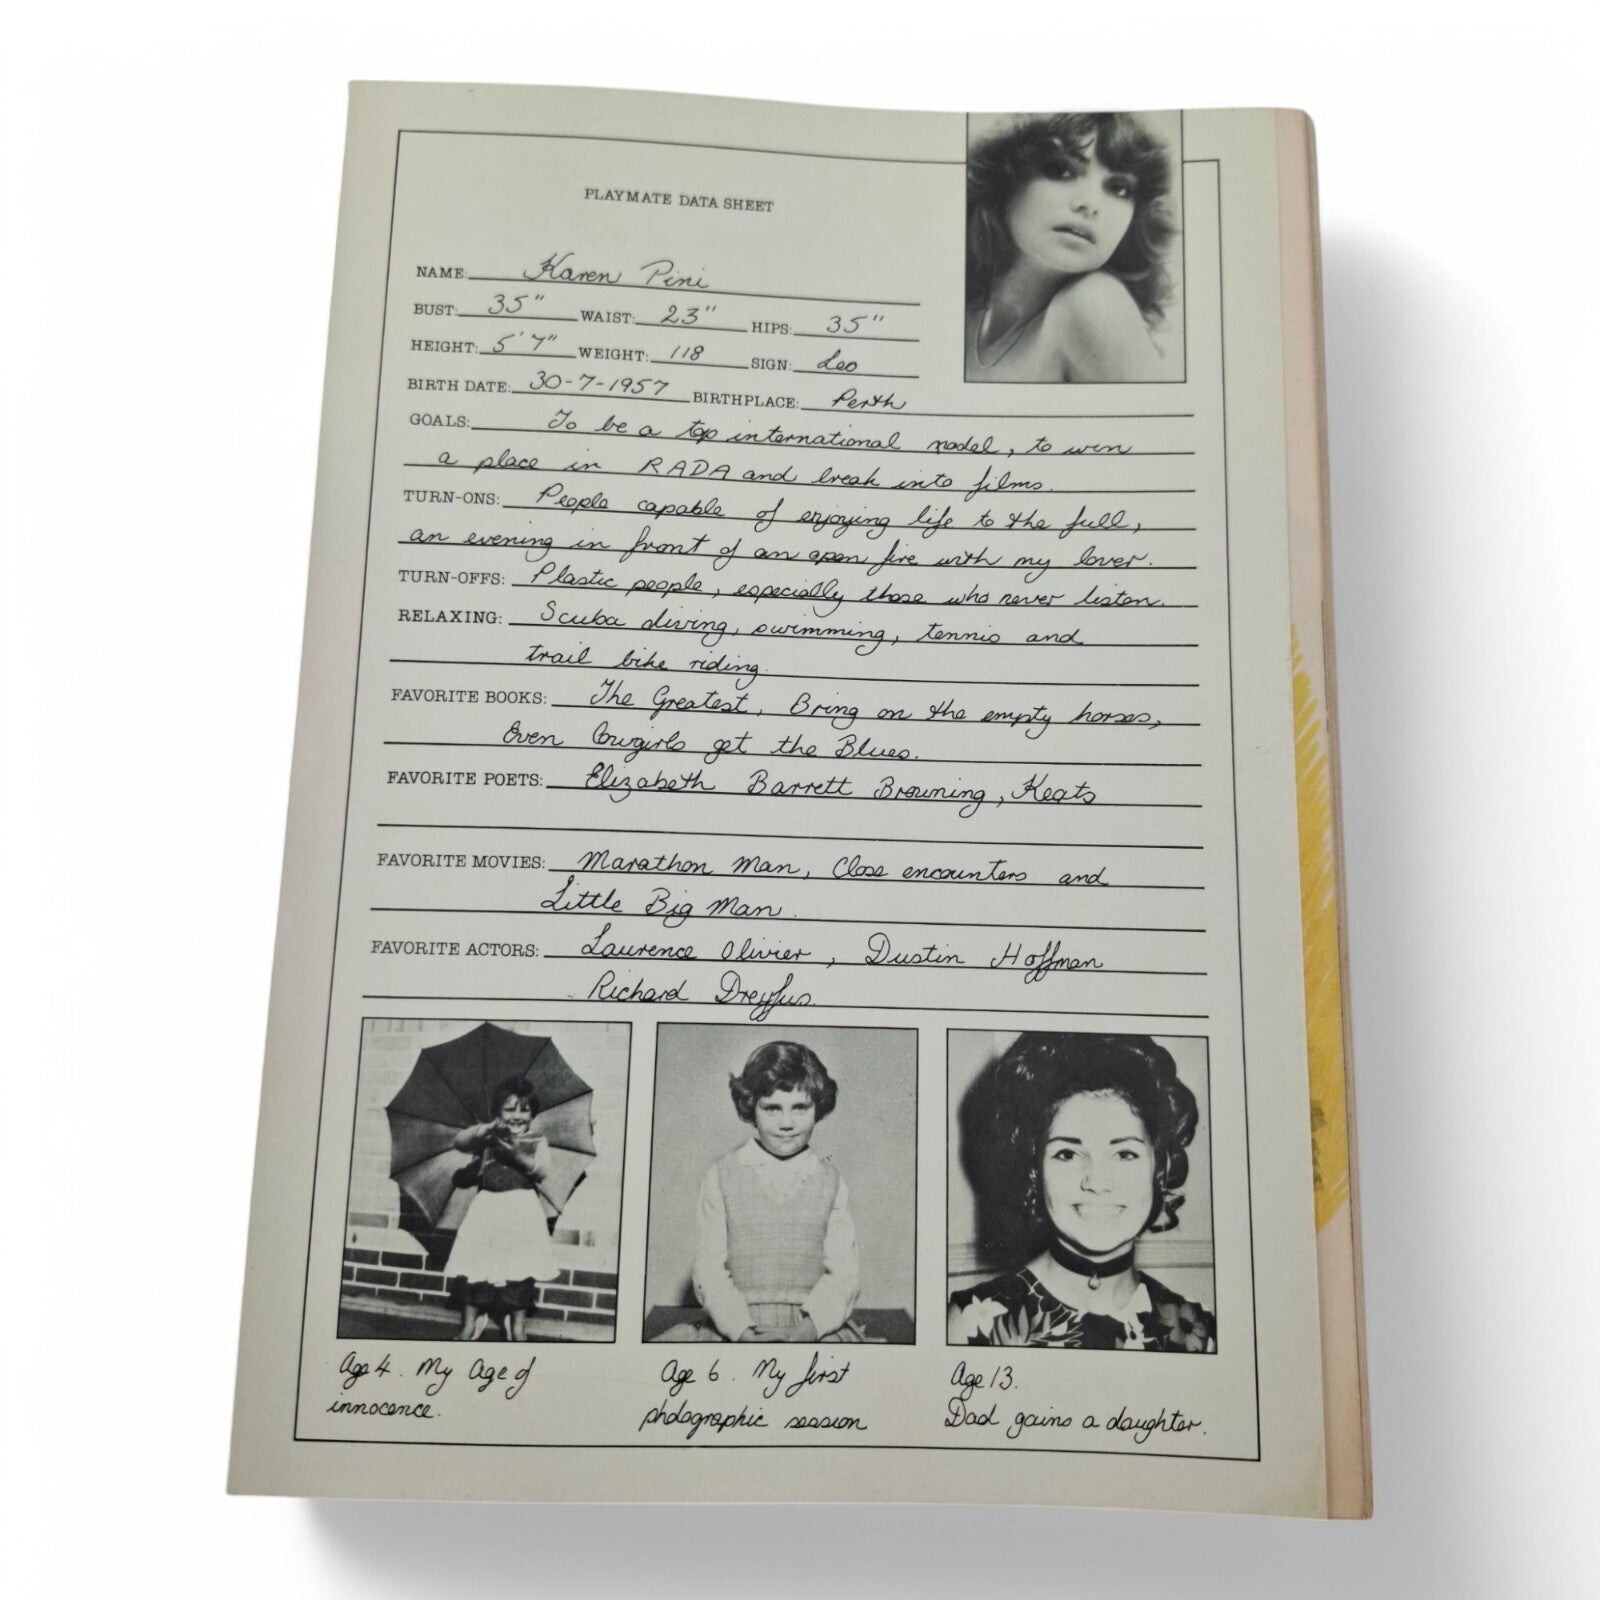 PLAYMATE DATA SHEET
NAME: Karen Pini
BUST: 35" WAIST: 23" HIPS: 35"
HEIGHT: 5'7" WEIGHT: 118 SIGN: Leo
BIRTH DATE: 30-7-1957 BIRTHPLACE: Perth
GOALS: To be a top international model, to win
a place in RADA and break into films.
TURN-ONS: People capable of enjoying life to the full,
an evening in front of an open fire with my lover.
TURN-OFFS: Plastic people, especially those who never listen.
RELAXING: Scuba diving, swimming, tennis and
trail bike riding.
FAVORITE BOOKS: The Greatest, Bring on the empty horses,
Even Cowgirls get the Blues.
FAVORITE POETS: Elizabeth Barrett Browning, Keats
FAVORITE MOVIES: Marathon Man, Close encounters and
Little Big Man.
FAVORITE ACTORS: Laurence Olivier, Dustin Hoffman
Richard Dreyfus.
Age 4. My Age of
innocence.
Age 6. My first
photographic session
Age 13.
Dad gains a daughter.